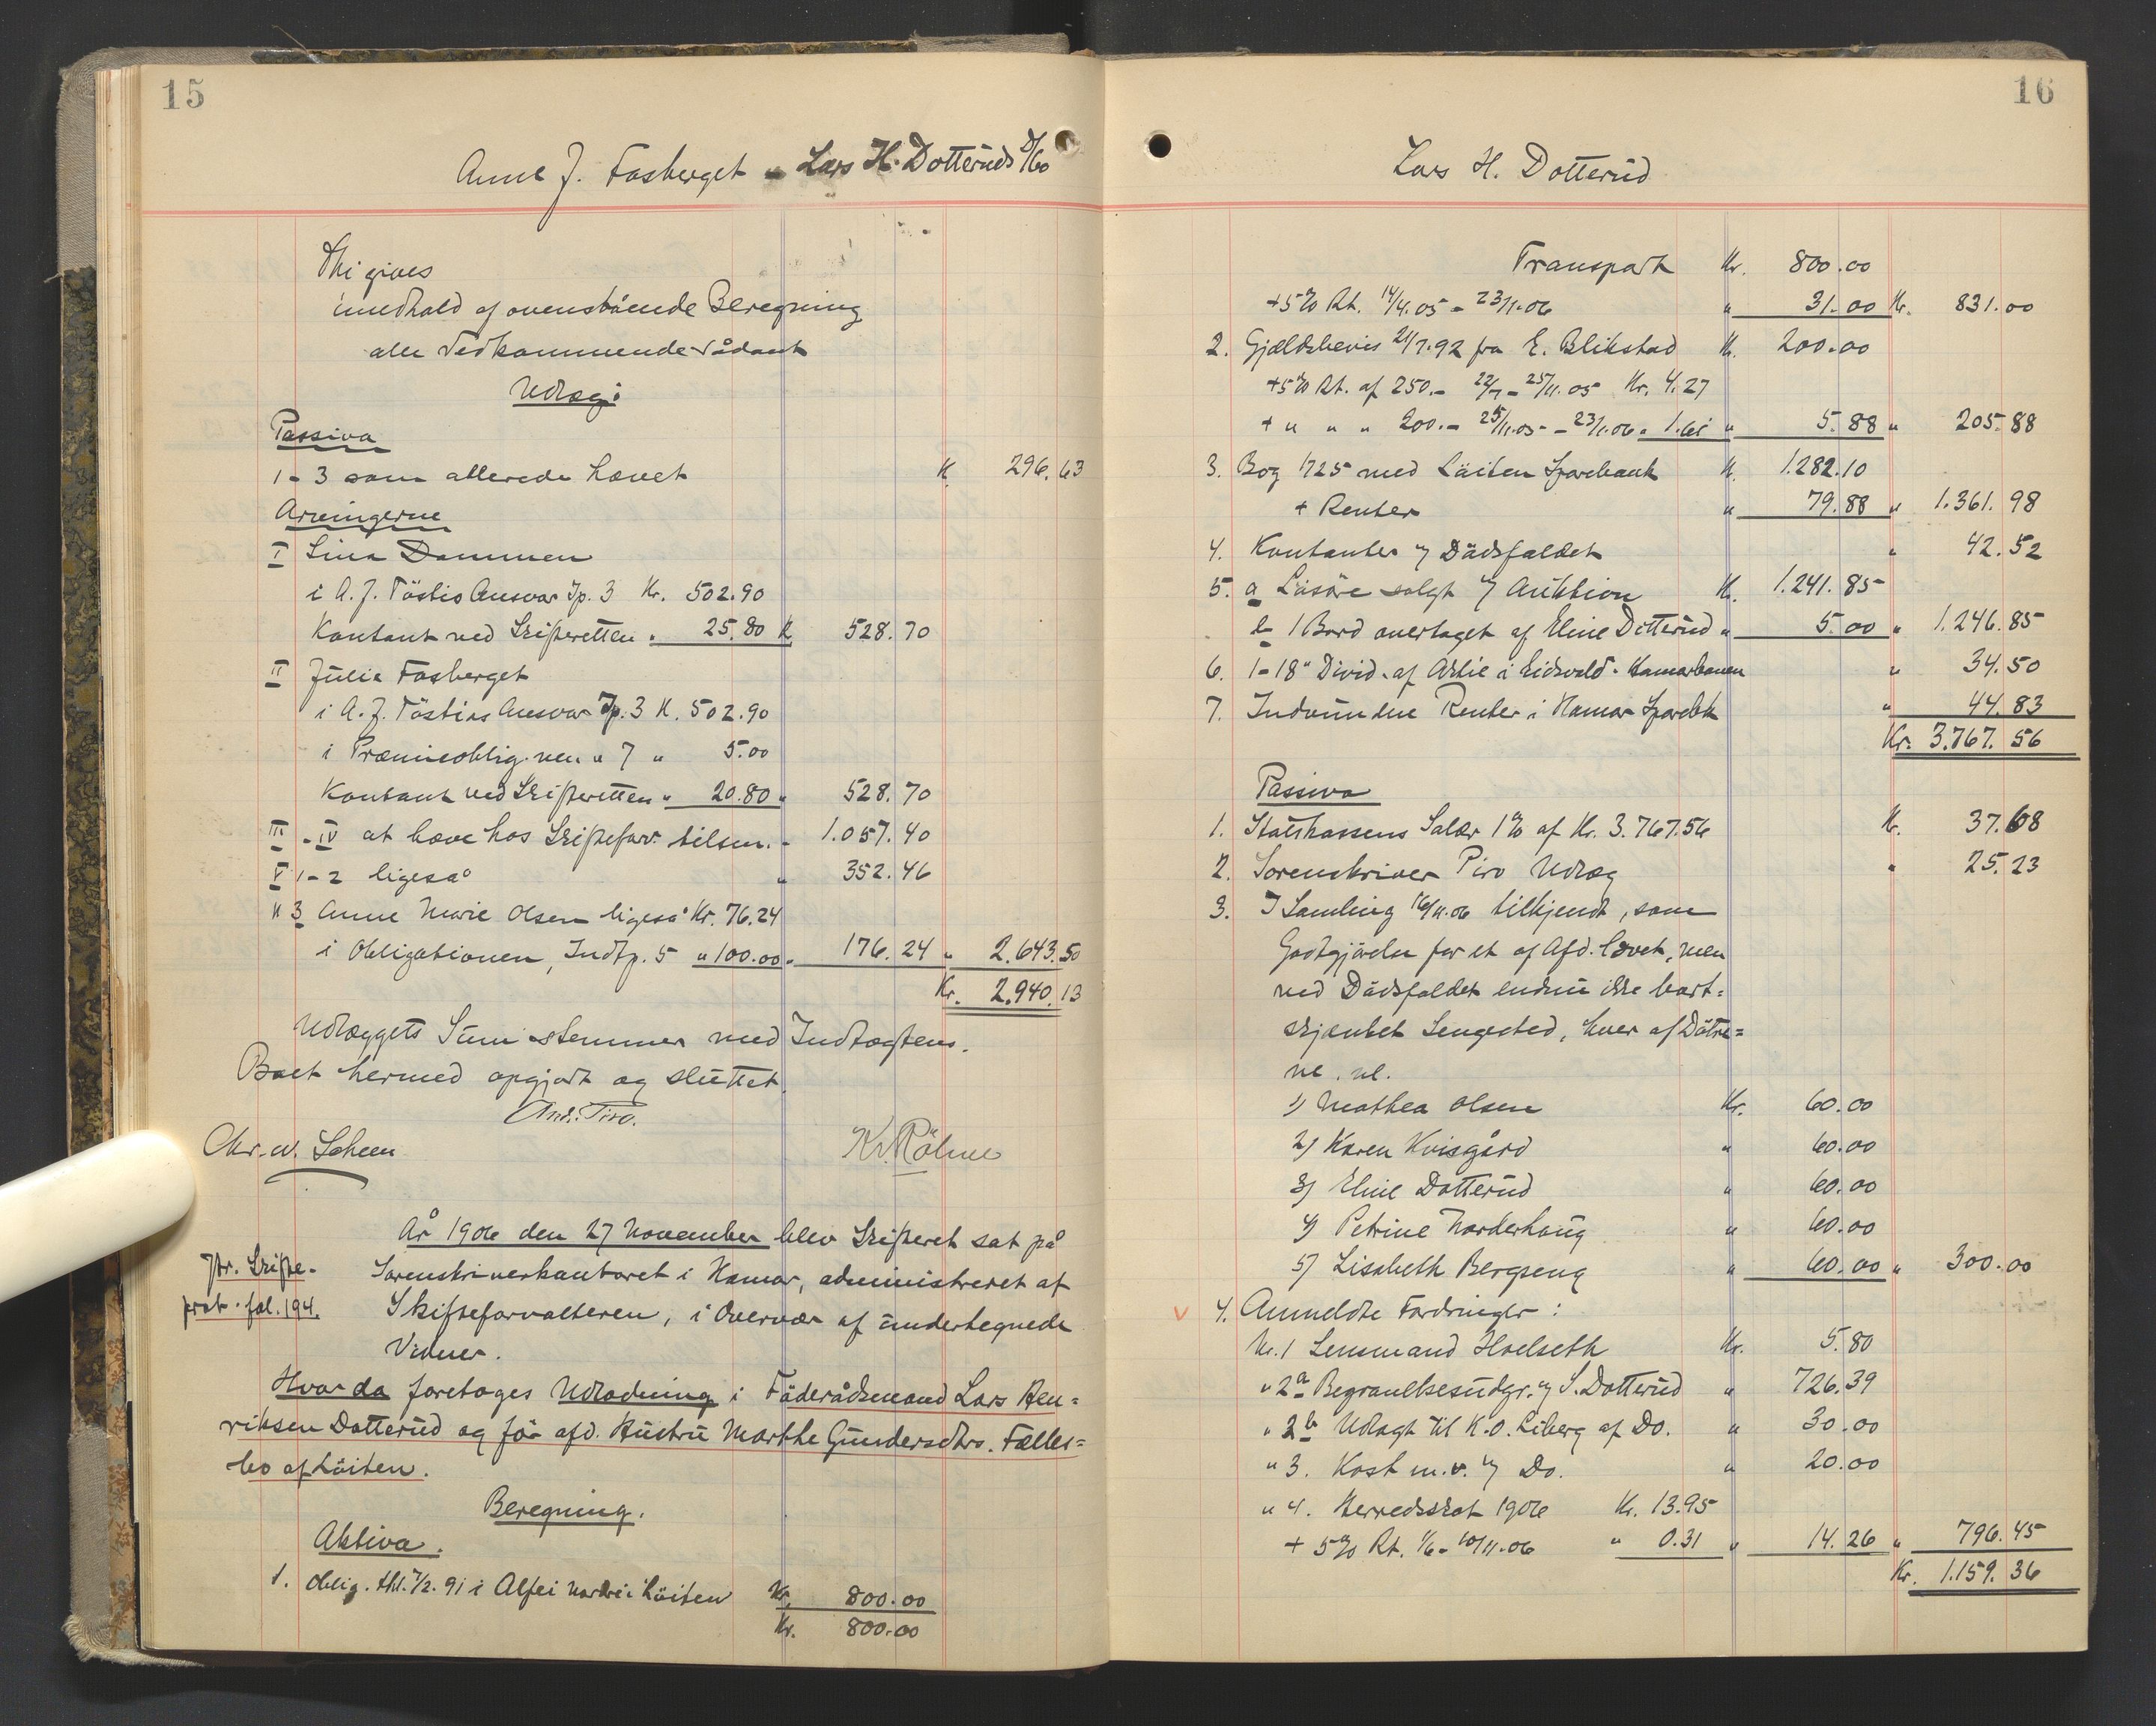 15
Anne J. Fosberget - Lars H. Dotteruds D/bo
Thi gives
i medhold af ovenstående Beregning
alle Vedkommende sådant
Udlæg:
Passiva
1-3 som allerede hævet K. 296.63
Arvingerne
I Lina Dammen
i A. J. Töstis Ansvar Ip. 3 Kr. 502.90
Kontant ved Skifteretten " 25.80 K. 528.70
II Julie Fosberget
i A. J. Tösties Ansvar Ip. 3 K. 502.90
i Præmieoblig.nen " 7 " 5.00
Kontant ved Skifteretten " 20.80 " 528.70
III - IV at hæve hos Skifteforv. tilsm. - 1.057.40
V 1-2 ligeså " 352.46
" 3 Anne Marie Olsen ligeså Kr. 76.24
i Obligationen, Indtp. 5 " 100.00 - 176.24 " 2.643.50
Kr. 2.940.13
Udlæggets Sum stemmer med Indtægtens.
Boet hermed opgjort og sluttet.
And. Piro.
Chr. W. Scheen Kr. Rölme
År 1906 den 27 November blev Skifteret sat på
Sorenskriverkontoret i Hamar, administreret af
Skifteforvalteren, i Overvær af undertegnede
Vidner.
Jfr. Skifte-
prot. fol. 194.
Hvor da foretoges Udlodning i Föderådsmand Lars Hen=
riksen Dotterud og för afd. Hustru Marthe Gundersdtrs. Fælles=
bo af Löiten.
Beregning.
Aktiva.
1. Oblig. thl. 7/2. 91 i Alfei nordre i Löiten Kr. 800.00
Kr. 800.00
16
Lars H. Dotterud
Transport Kr. 800.00
+ 5% Rt. 14/4.05 - 23/1.06 " 31.00 Kr. 831.00
2. Gjældsbevis 21/7.92 fra E. Blikstad K. 200.00
+ 5% Rt. af 250.- 22/7 - 25/11.05 Kr. 4.27
+ " " " 200.- 25/11.05 - 23/1.06 " 1.61 " 5.88 " 205.88
3. Bog 1725 med Löiten Sparebank K. 1.282.10
+ Renter " 79.88 " 1.361.98
4. Kontanter v/ Dödsfaldet " 42.52
5. a Lösöre solgt v/ Auktion Kr. 1.241.85
b 1 Bord overtaget af Eline Dotterud " 5.00 " 1.246.85
6. 1-18" Divid. af Aktie i Eidsvold-Hamarbanen " 34.50
7. Indvundne Renter i Hamar Sparebk " 44.83
Kr. 3.767.56
Passiva
1. Statskassens Salær 1% af Kr. 3.767.56 K. 37.68
2. Sorenskriver Piro Udlæg " 25.23
3. I Samling 16/11.06 tilkjendt, som
Godtgjörelse for et af Afd. lovet, men
ved Dödsfaldet endnu ikke bort=
skjænket Sengested, hver af Dötre=
ne, nl.
1) Mathea Olsen Kr. 60.00
2) Karen Kvisgård " 60.00
3) Eline Dotterud " 60.00
4) Petrine Norderhaug " 60.00
5) Lisabeth Bergseng " 60.00 " 300.00
v 4. Anmeldte Fordringer:
Nr. 1 Lensmand Hoelseth Kr. 5.80
" 2a Begravelsesudgr. v/ S. Dotterud " 726.39
" 2b Udlagt til K. O. Liberg af Do. " 30.00
" 3. Kost m.v. v/ Do. " 20.00
" 4. Herredsskat 1906 Kr. 13.95
+ 5% Rt. 1/6 - 10/11.06 " 0.31 " 14.26 " 796.45
Kr. 1.159.36